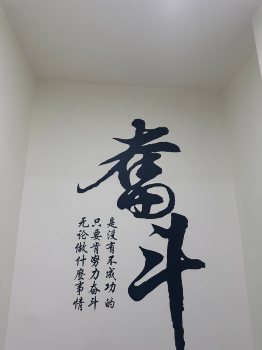 奮斗
无论做什麽事情
只要肯努力奋斗
是没有不成功的